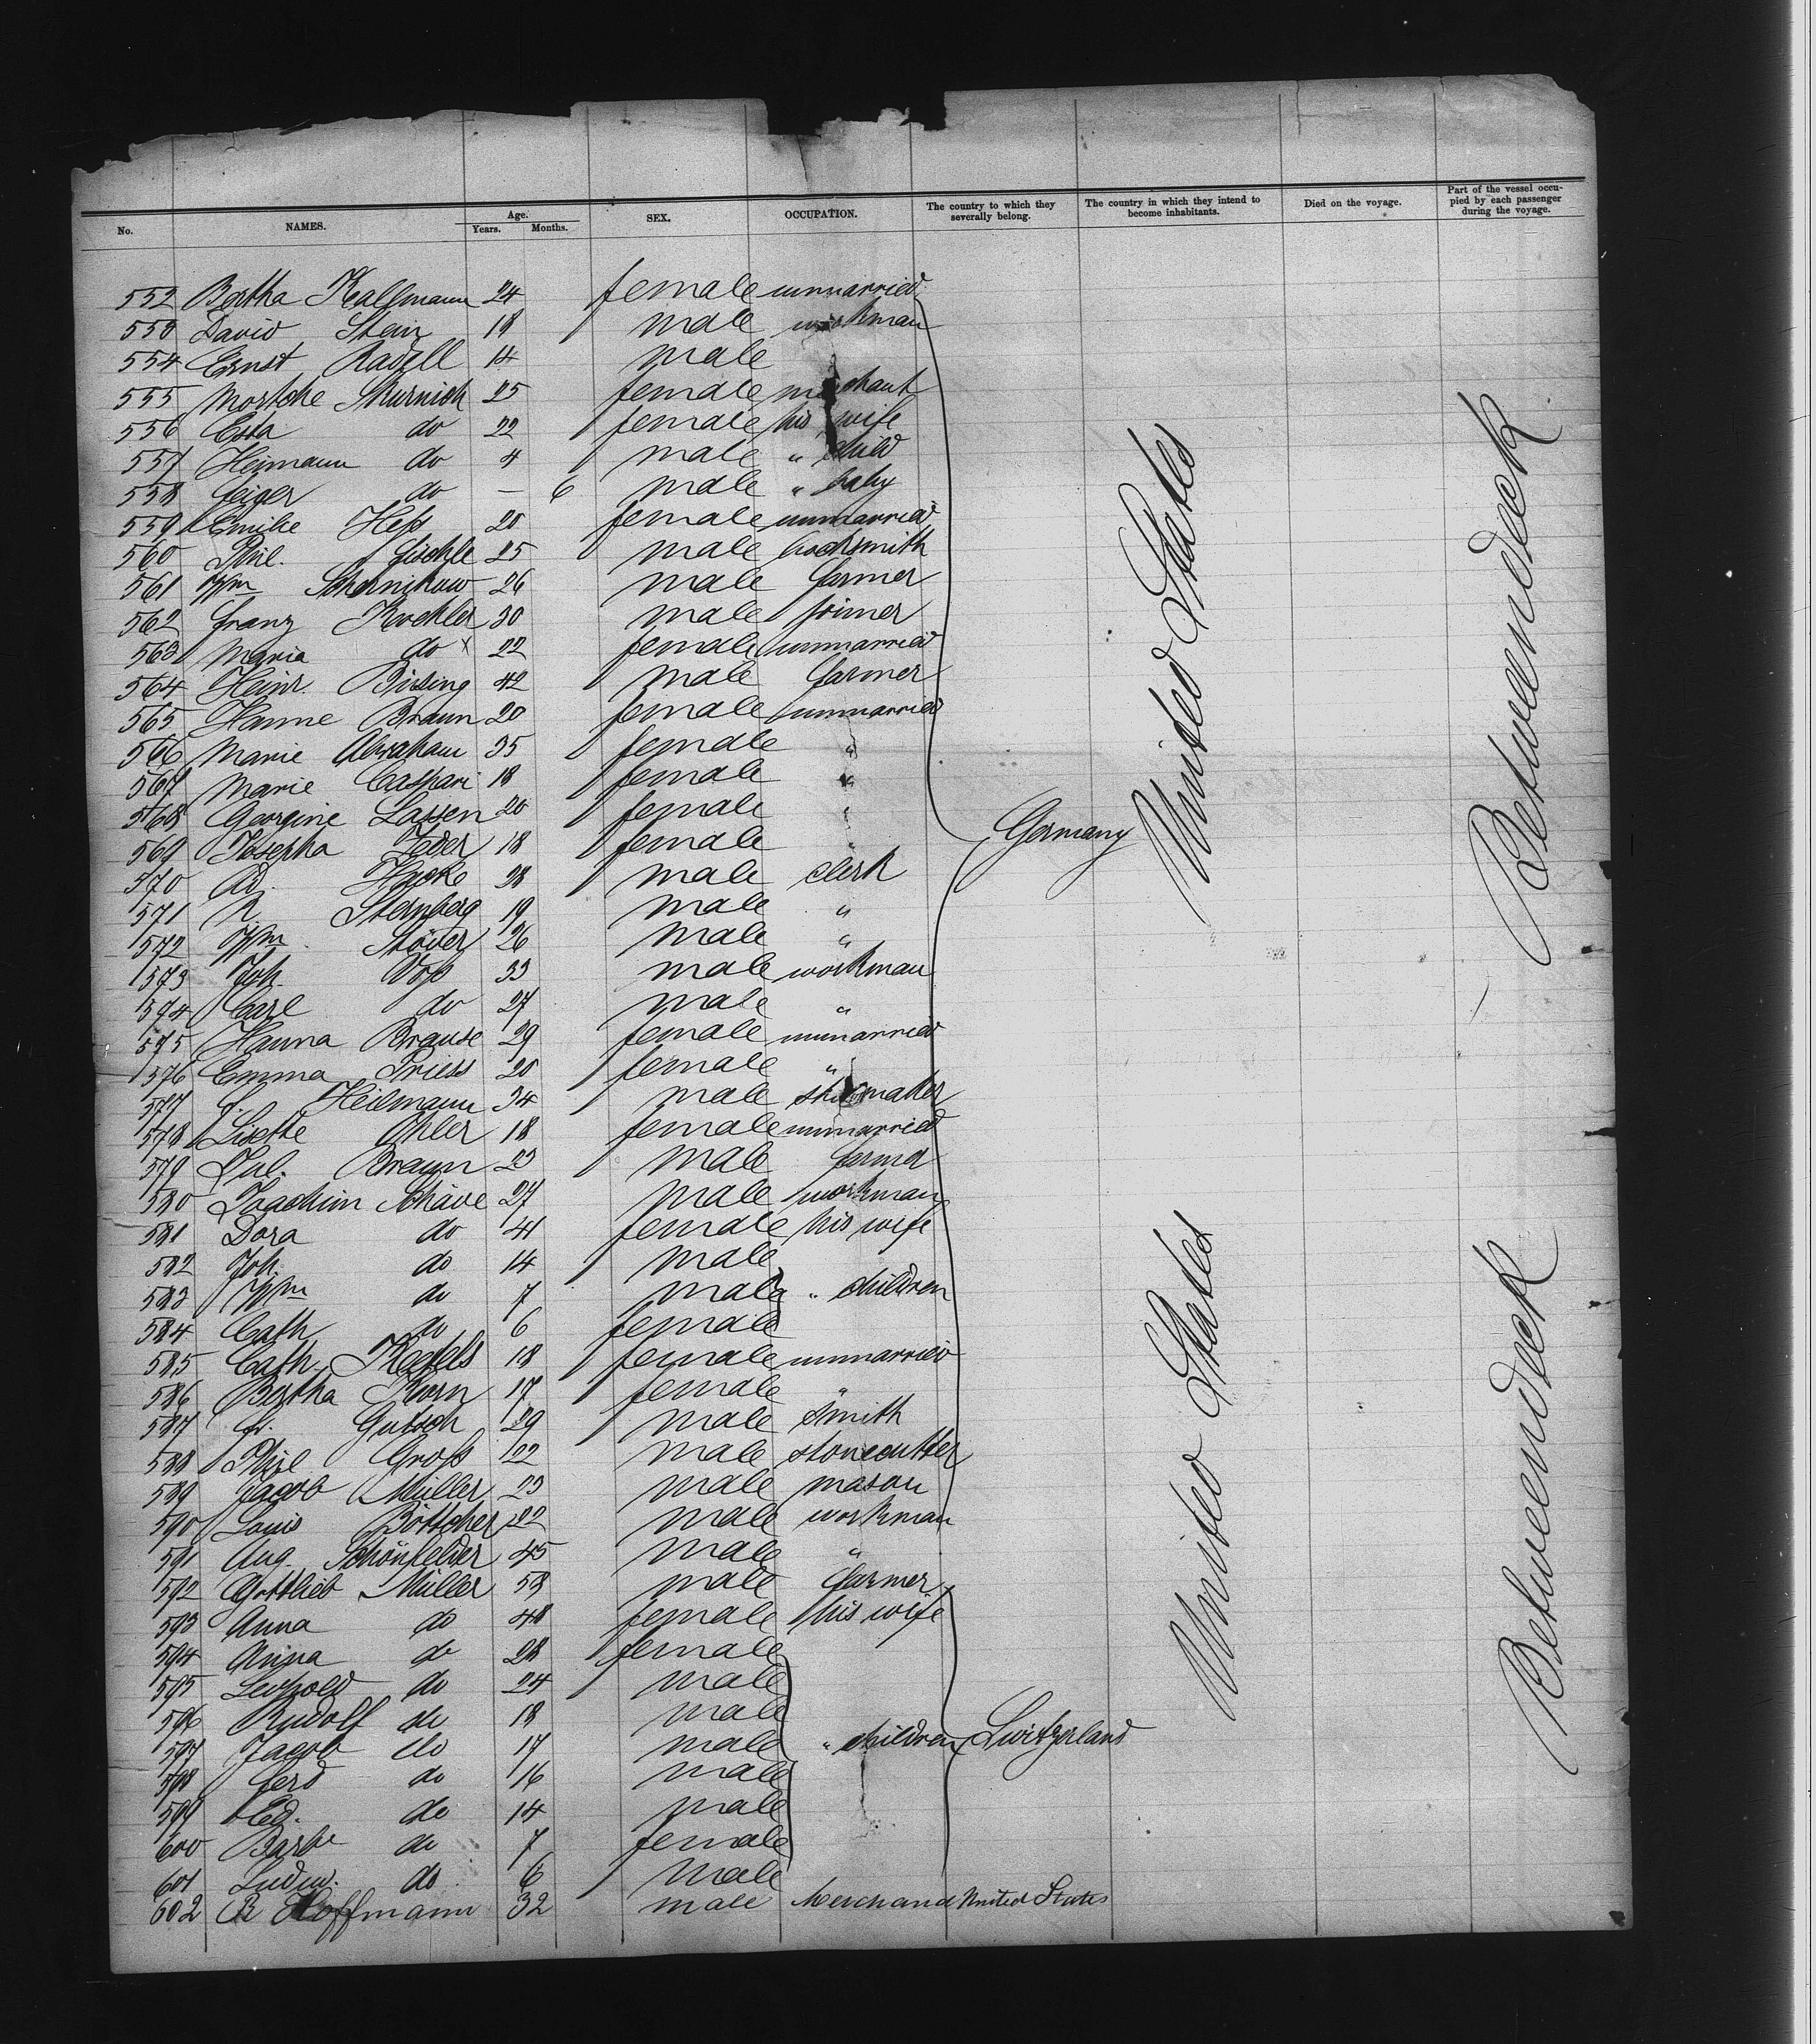 No. NAMES. Age. Years. Months. SEX. OCCUPATION. The country to which they severally belong. The country in which they intend to become inhabitants. Died on the voyage. Part of the vessel occupied by each passenger during the voyage.
552 Bertha Kallmann 24 female unmarried
553 David Stein 18 male workman
554 Ernst Radell 14 male
555 Mortche Skurnick 25 female merchant
556 Esta do 22 female his wife
557 Heimann do 4 male " child
558 Feiger do — 6 male " baby
559 Emilie Heß 20 female unmarried
560 Phil. Fischle 25 male locksmith
561 Wm Schernikow 26 male farmer
562 Franz Kuckler 30 male joiner
563 Maria do x 22 female unmarried
564 Heinr. Bissing 42 male farmer
565 Hanne Braun 20 female unmarried
566 Marie Abraham 35 female "
567 Marie Caspari 18 female "
568 Georgine Lassen 20 female "
569 Josepha Feder 18 female "
Germany
United States
Betweendeck
570 Ad. Hacke 28 male clerk
571 R. Sternberg 19 male "
572 Wm. Stöver 26 male "
573 Joh. Voß 33 male workman
574 Carl do 27 male "
575 Hanna Brause 29 female unmarried
576 Emma Priess 20 female "
577 F. Heilmann 34 male shoemaker
578 Lisette Ohler 18 female unmarried
579 Jul. Braun 23 male farmer
580 Joachim Schäve 27 male workman
581 Dora do 41 female his wife
582 Joh. do 14 male
583 Wm do 7 male " children
584 Cath do 6 female
585 Cath. Kessels 18 female unmarried
586 Bertha Korn 17 female "
587 Fr. Gutsch 29 male smith
588 Phil Groß 22 male stonecutter
589 Jacob Müller 23 male mason
590 Louis Böttcher 22 male workman
591 Aug. Schönfelder 45 male "
592 Gottlieb Müller 58 male farmer
593 Anna do 48 female his wife
594 Anna do 28 female
595 Leopold do 24 male
596 Rudolf do 18 male
597 Jacob do 17 male " children Switzerland
United States
Betweendeck
598 Ferd do 16 male
599 Ed. do 14 male
600 Barb. do 7 female
601 Ludw. do 6 male
602 B Hoffmann 32 male Merchand United States